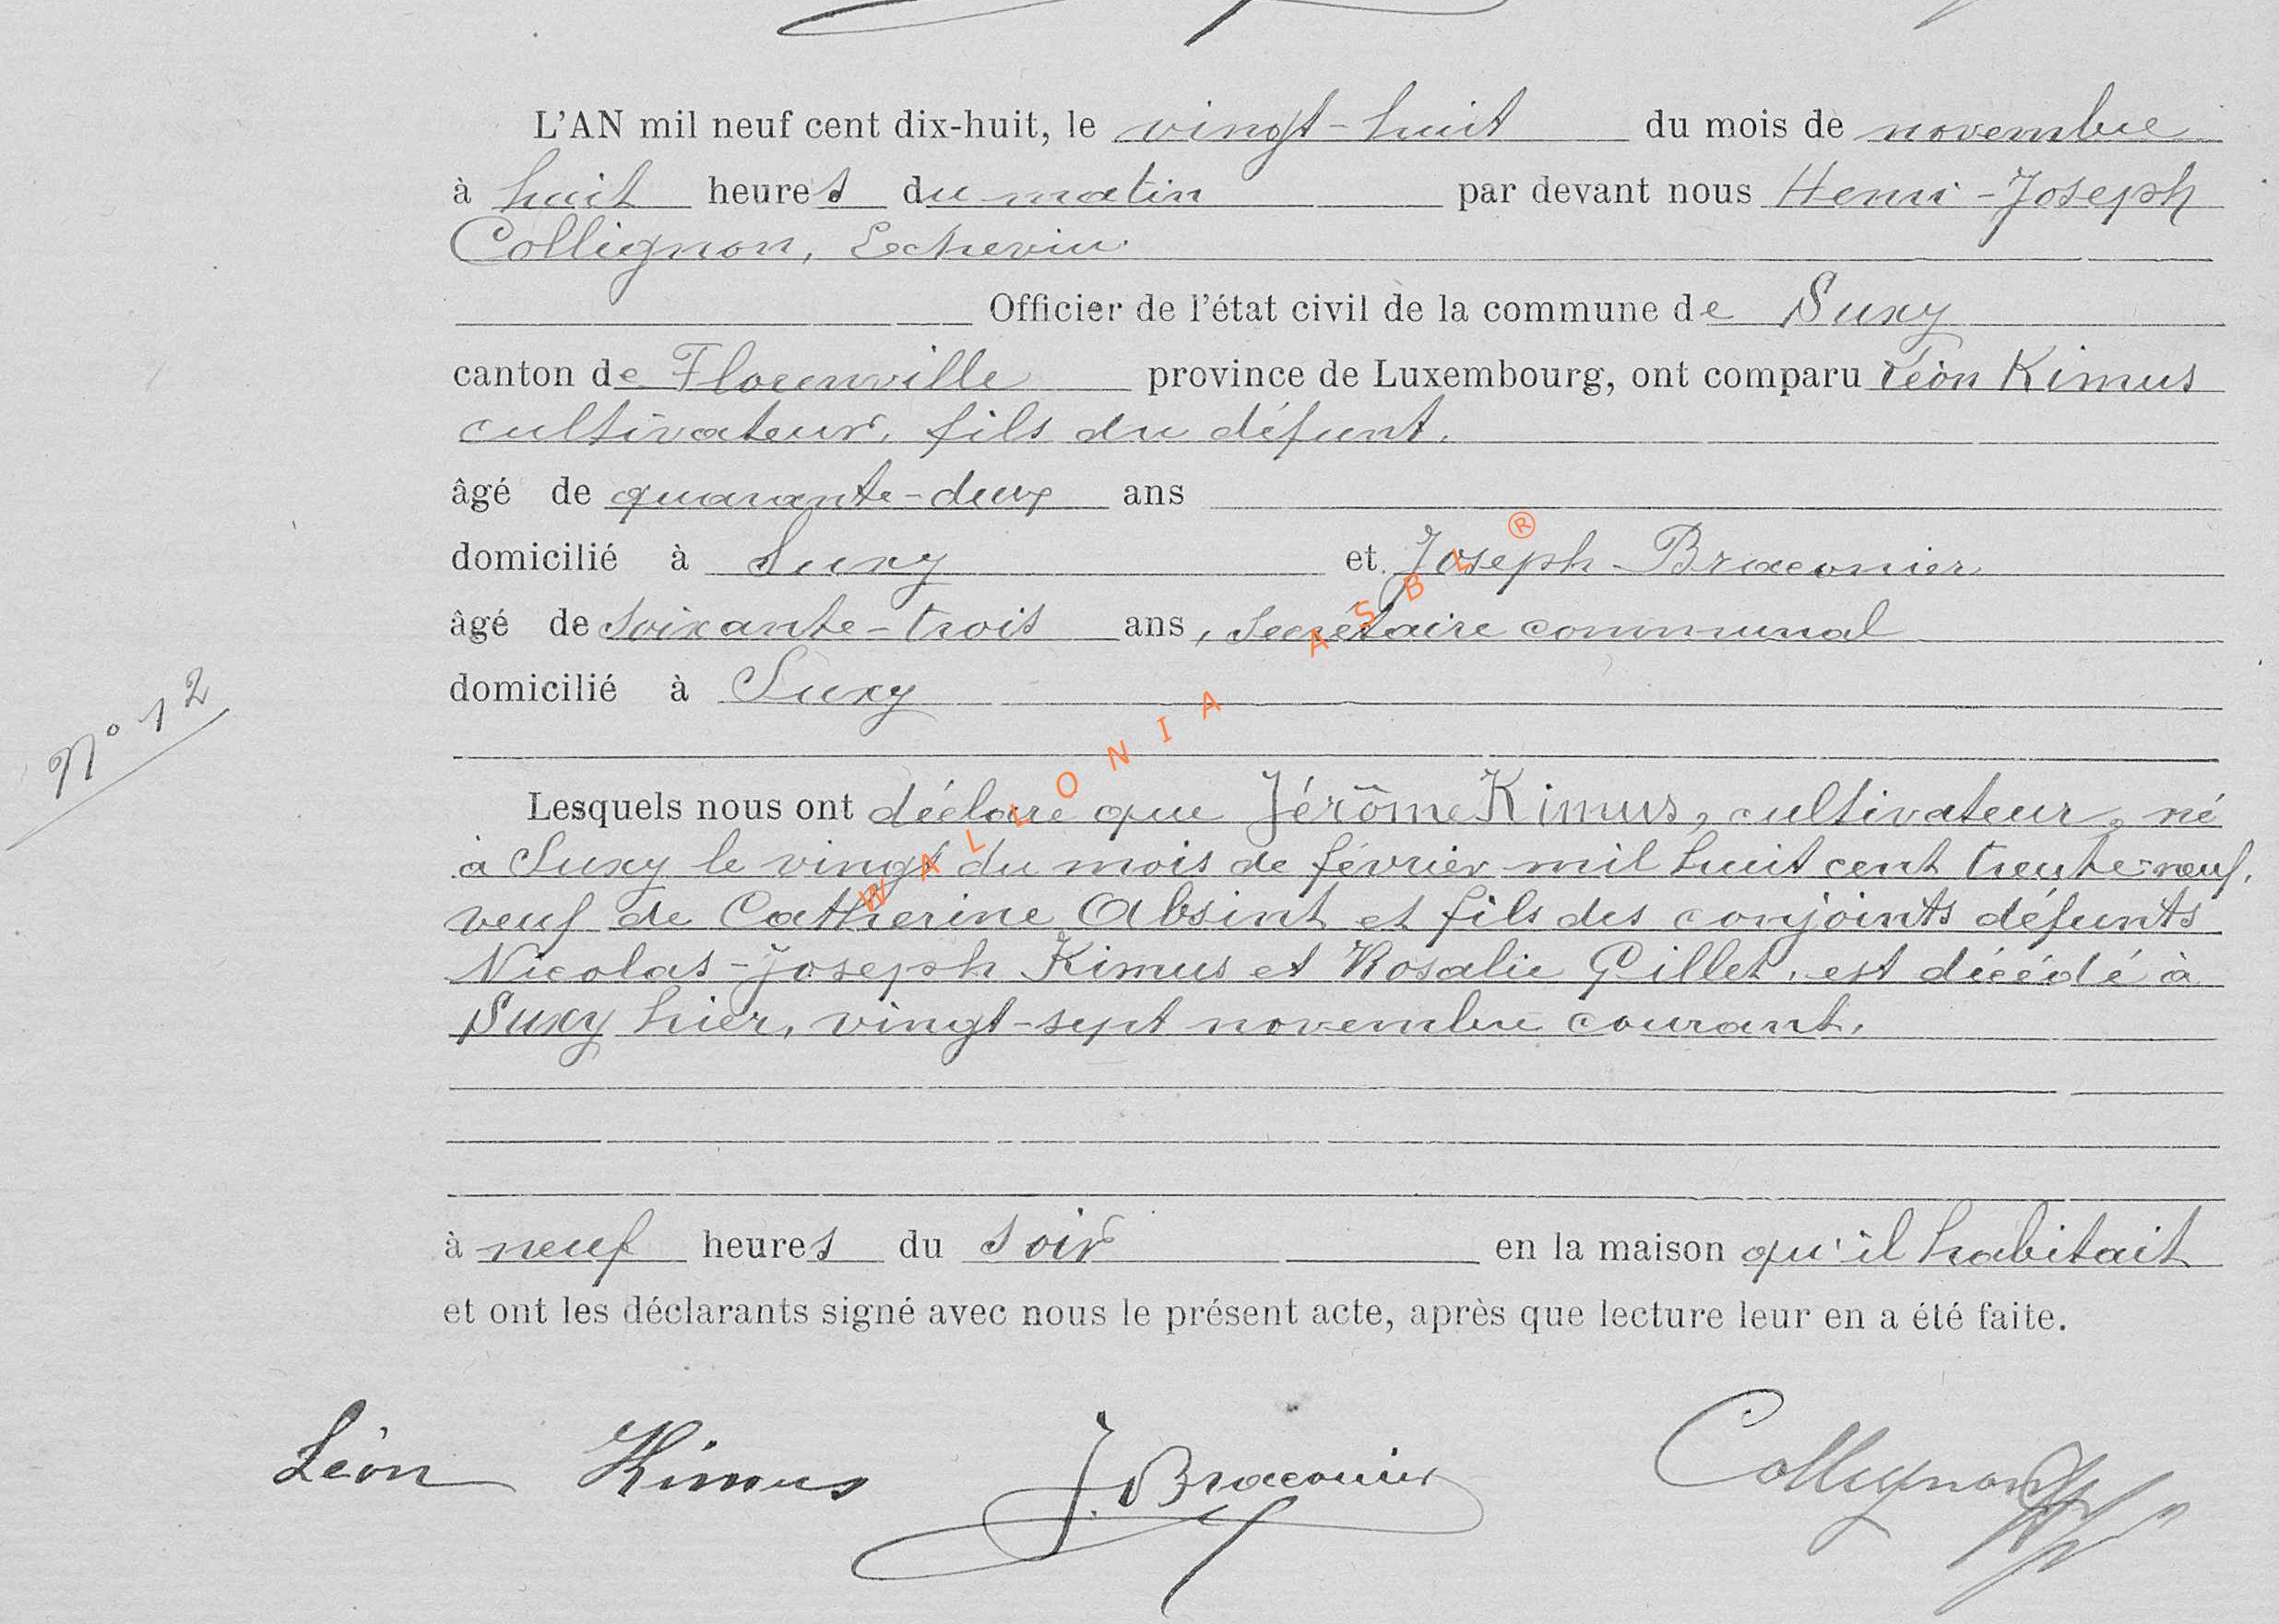 L'AN mil neuf cent dix-huit, le vingt-huit du mois de novembre
à huit heures du matin par devant nous Henri-Joseph
Collignon, Echevin
Officier de l'état civil de la commune de Suxy
canton de Florenville province de Luxembourg, ont comparu Léon Kimus
cultivateur, fils du défunt.
âgé de quarante-deux ans
domicilié à Suxy et Joseph Braconier
âgé de soixante-trois ans, secrétaire communal
domicilié à Suxy
N° 12
Lesquels nous ont déclaré que Jérôme Kimus, cultivateur, né
à Suxy le vingt du mois de février mil huit cent trente-neuf,
veuf de Catherine Absint et fils des conjoints défunts
Nicolas-Joseph Kimus et Rosalie Gillet, est décédé à
Suxy hier, vingt-sept novembre courant,
à neuf heures du soir en la maison qu'il habitait
et ont les déclarants signé avec nous le présent acte, après que lecture leur en a été faite.
Léon Kimus J. Braconier Collignon
WALLONIA ASBL ®